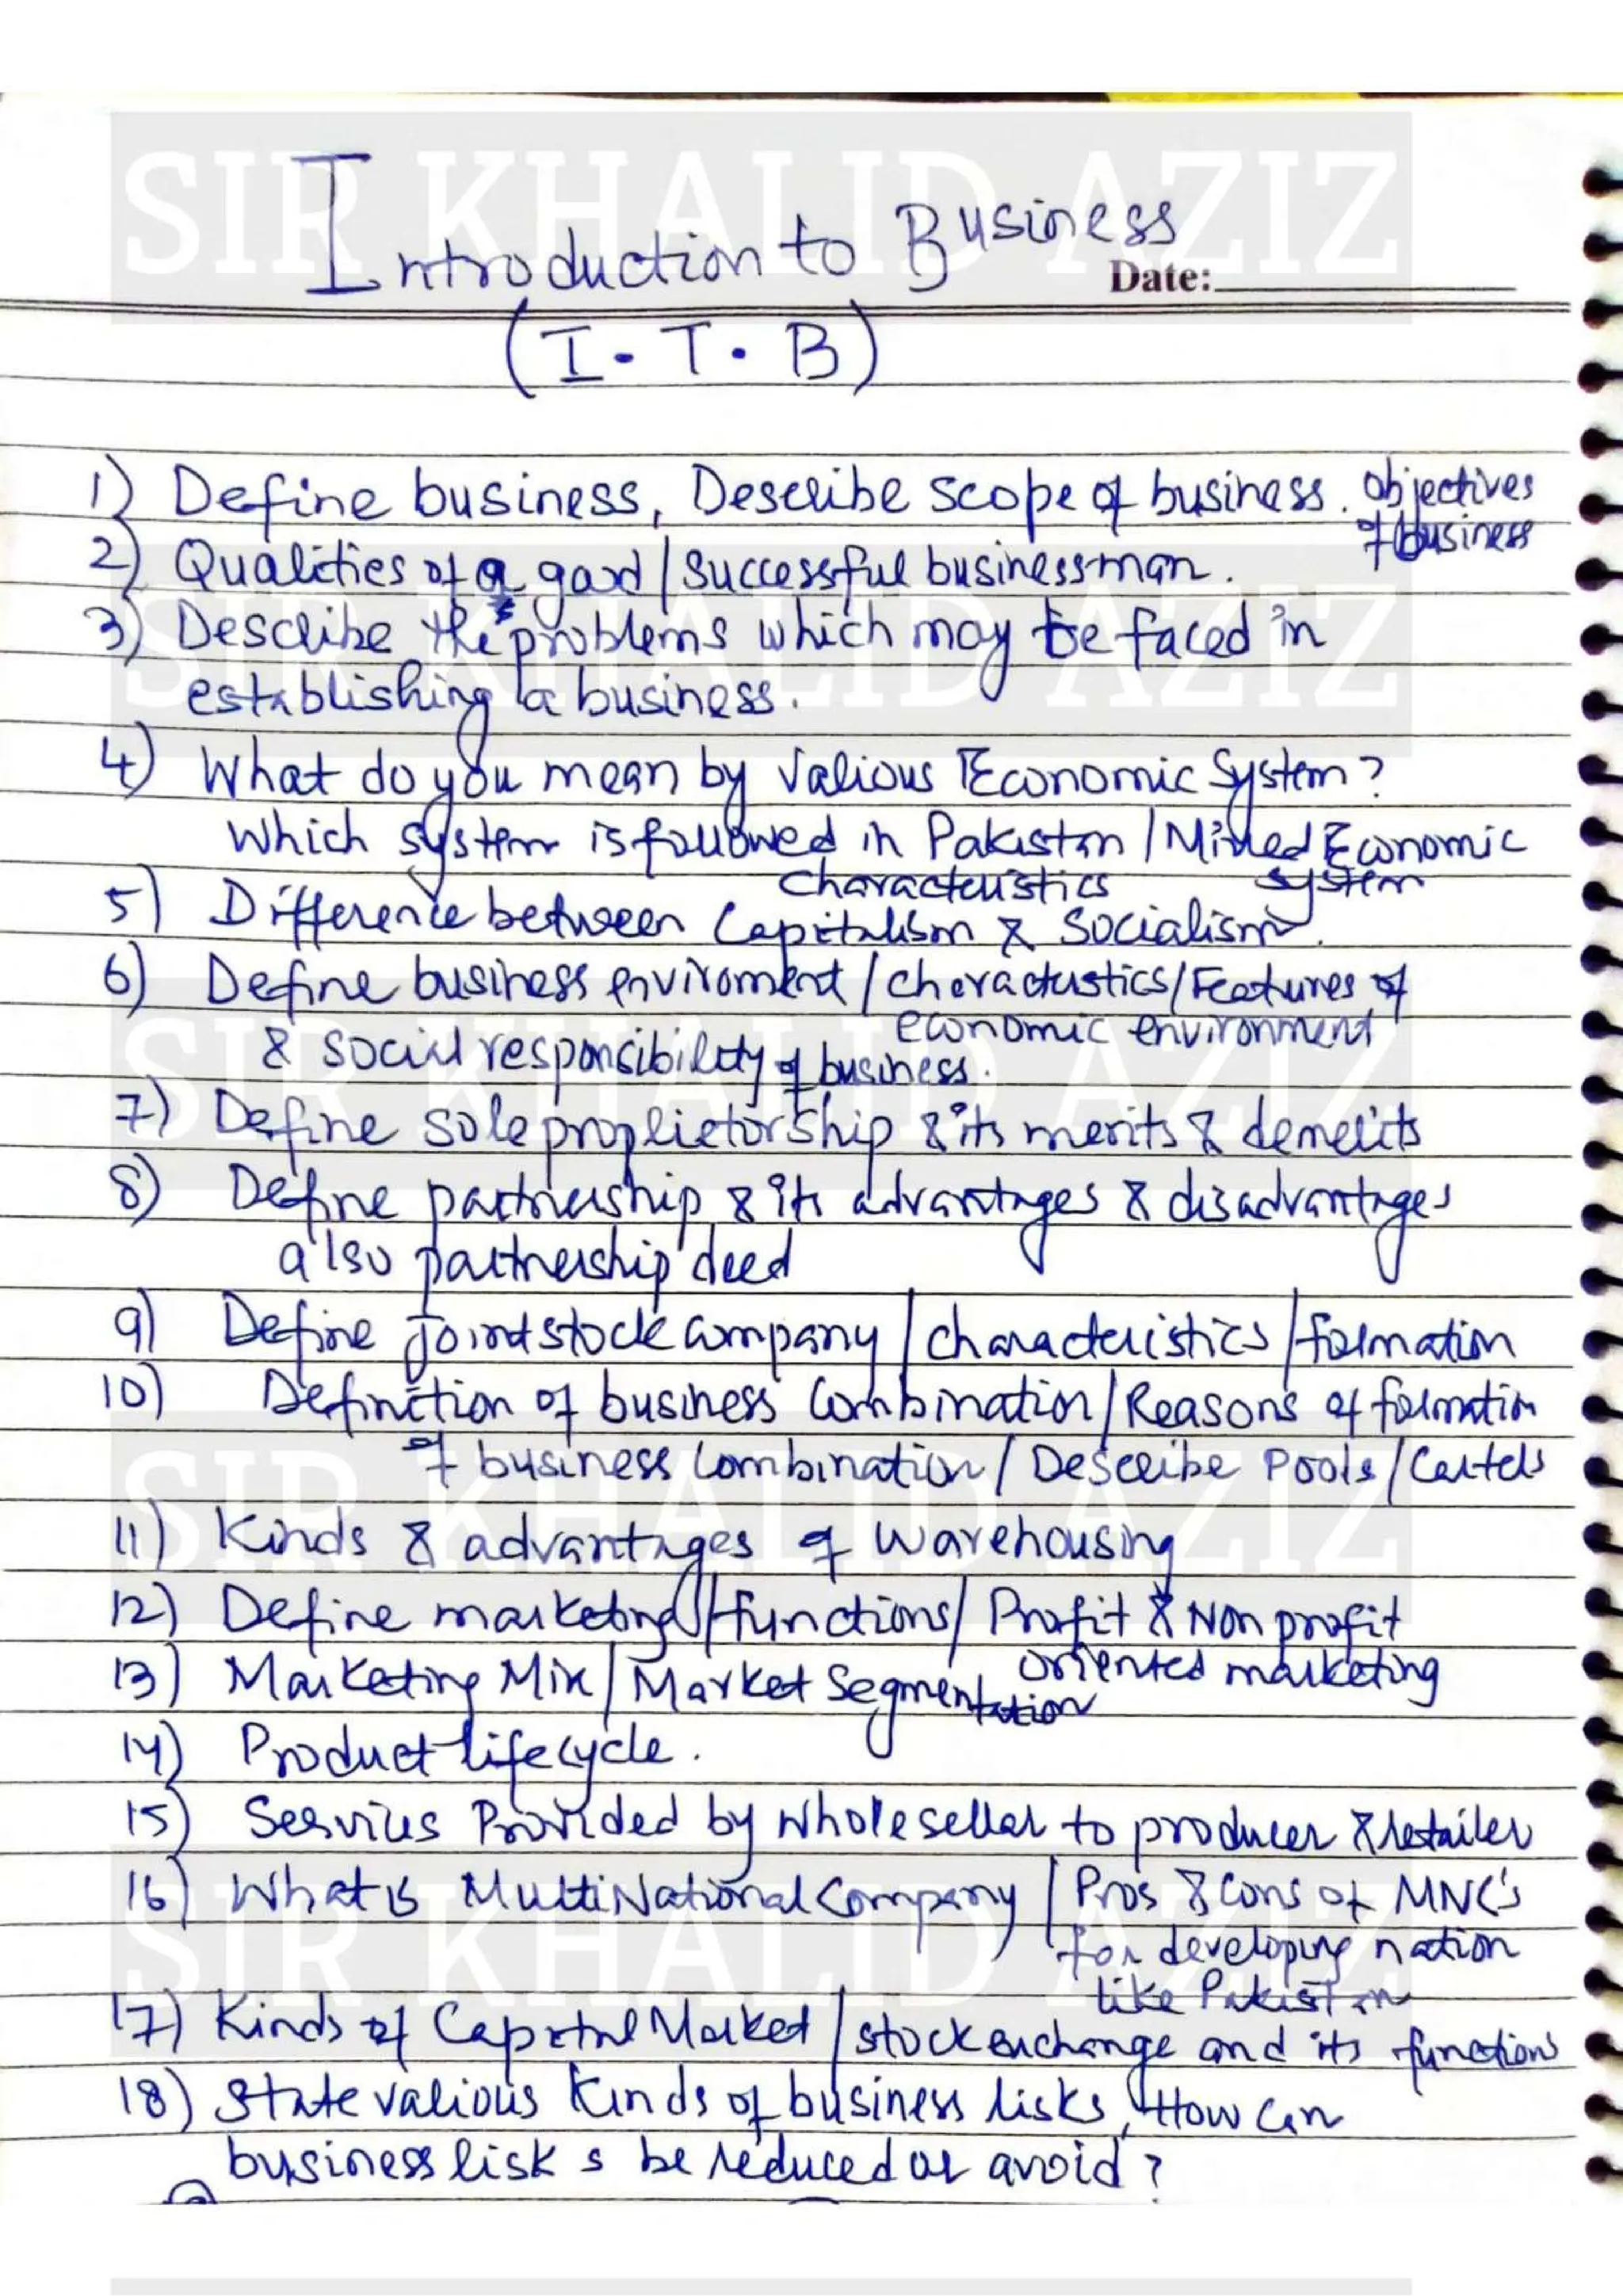 SIR KHALID AZIZ
Introduction to Business
Date:
(I.T.B)
1) Define business, Describe scope of business. Objectives
of business
2) Qualities of a good / Successful businessman.
SIR KHALID AZIZ
3) Describe the problems which may be faced in
establishing a business.
4) What do you mean by various Economic System?
Which system is followed in Pakistan / Mixed Economic
System
characteristics
5) Difference between Capitalism & Socialism.
6) Define business enviroment / charactustics / Features of
economic environment
& social responsibility of business.
SIR KHALID AZIZ
7) Define sole proprietorship & its merits & demerits
8) Define partnership & its advantages & disadvantages
also partnership deed
9) Define joint stock company / characteristics / formation
10) Definition of business Combination / Reasons of formation
of business Combination / Describe Pools / Cartels
SIR KHALID AZIZ
11) Kinds & advantages of Warehousing
12) Define marketing / functions / Profit & Non profit
oriented marketing
13) Marketing Mix / Market Segmentation
14) Product lifecycle.
15) Services Provided by wholesellar to producer & retailer
16) What is MultiNational Company / Pros & Cons of MNC's
for developing nation
like Pakistan
SIR KHALID AZIZ
17) Kinds of Capital Market / stock exchange and its functions
18) State various kinds of business risks, How can
business risks be reduced or avoid?